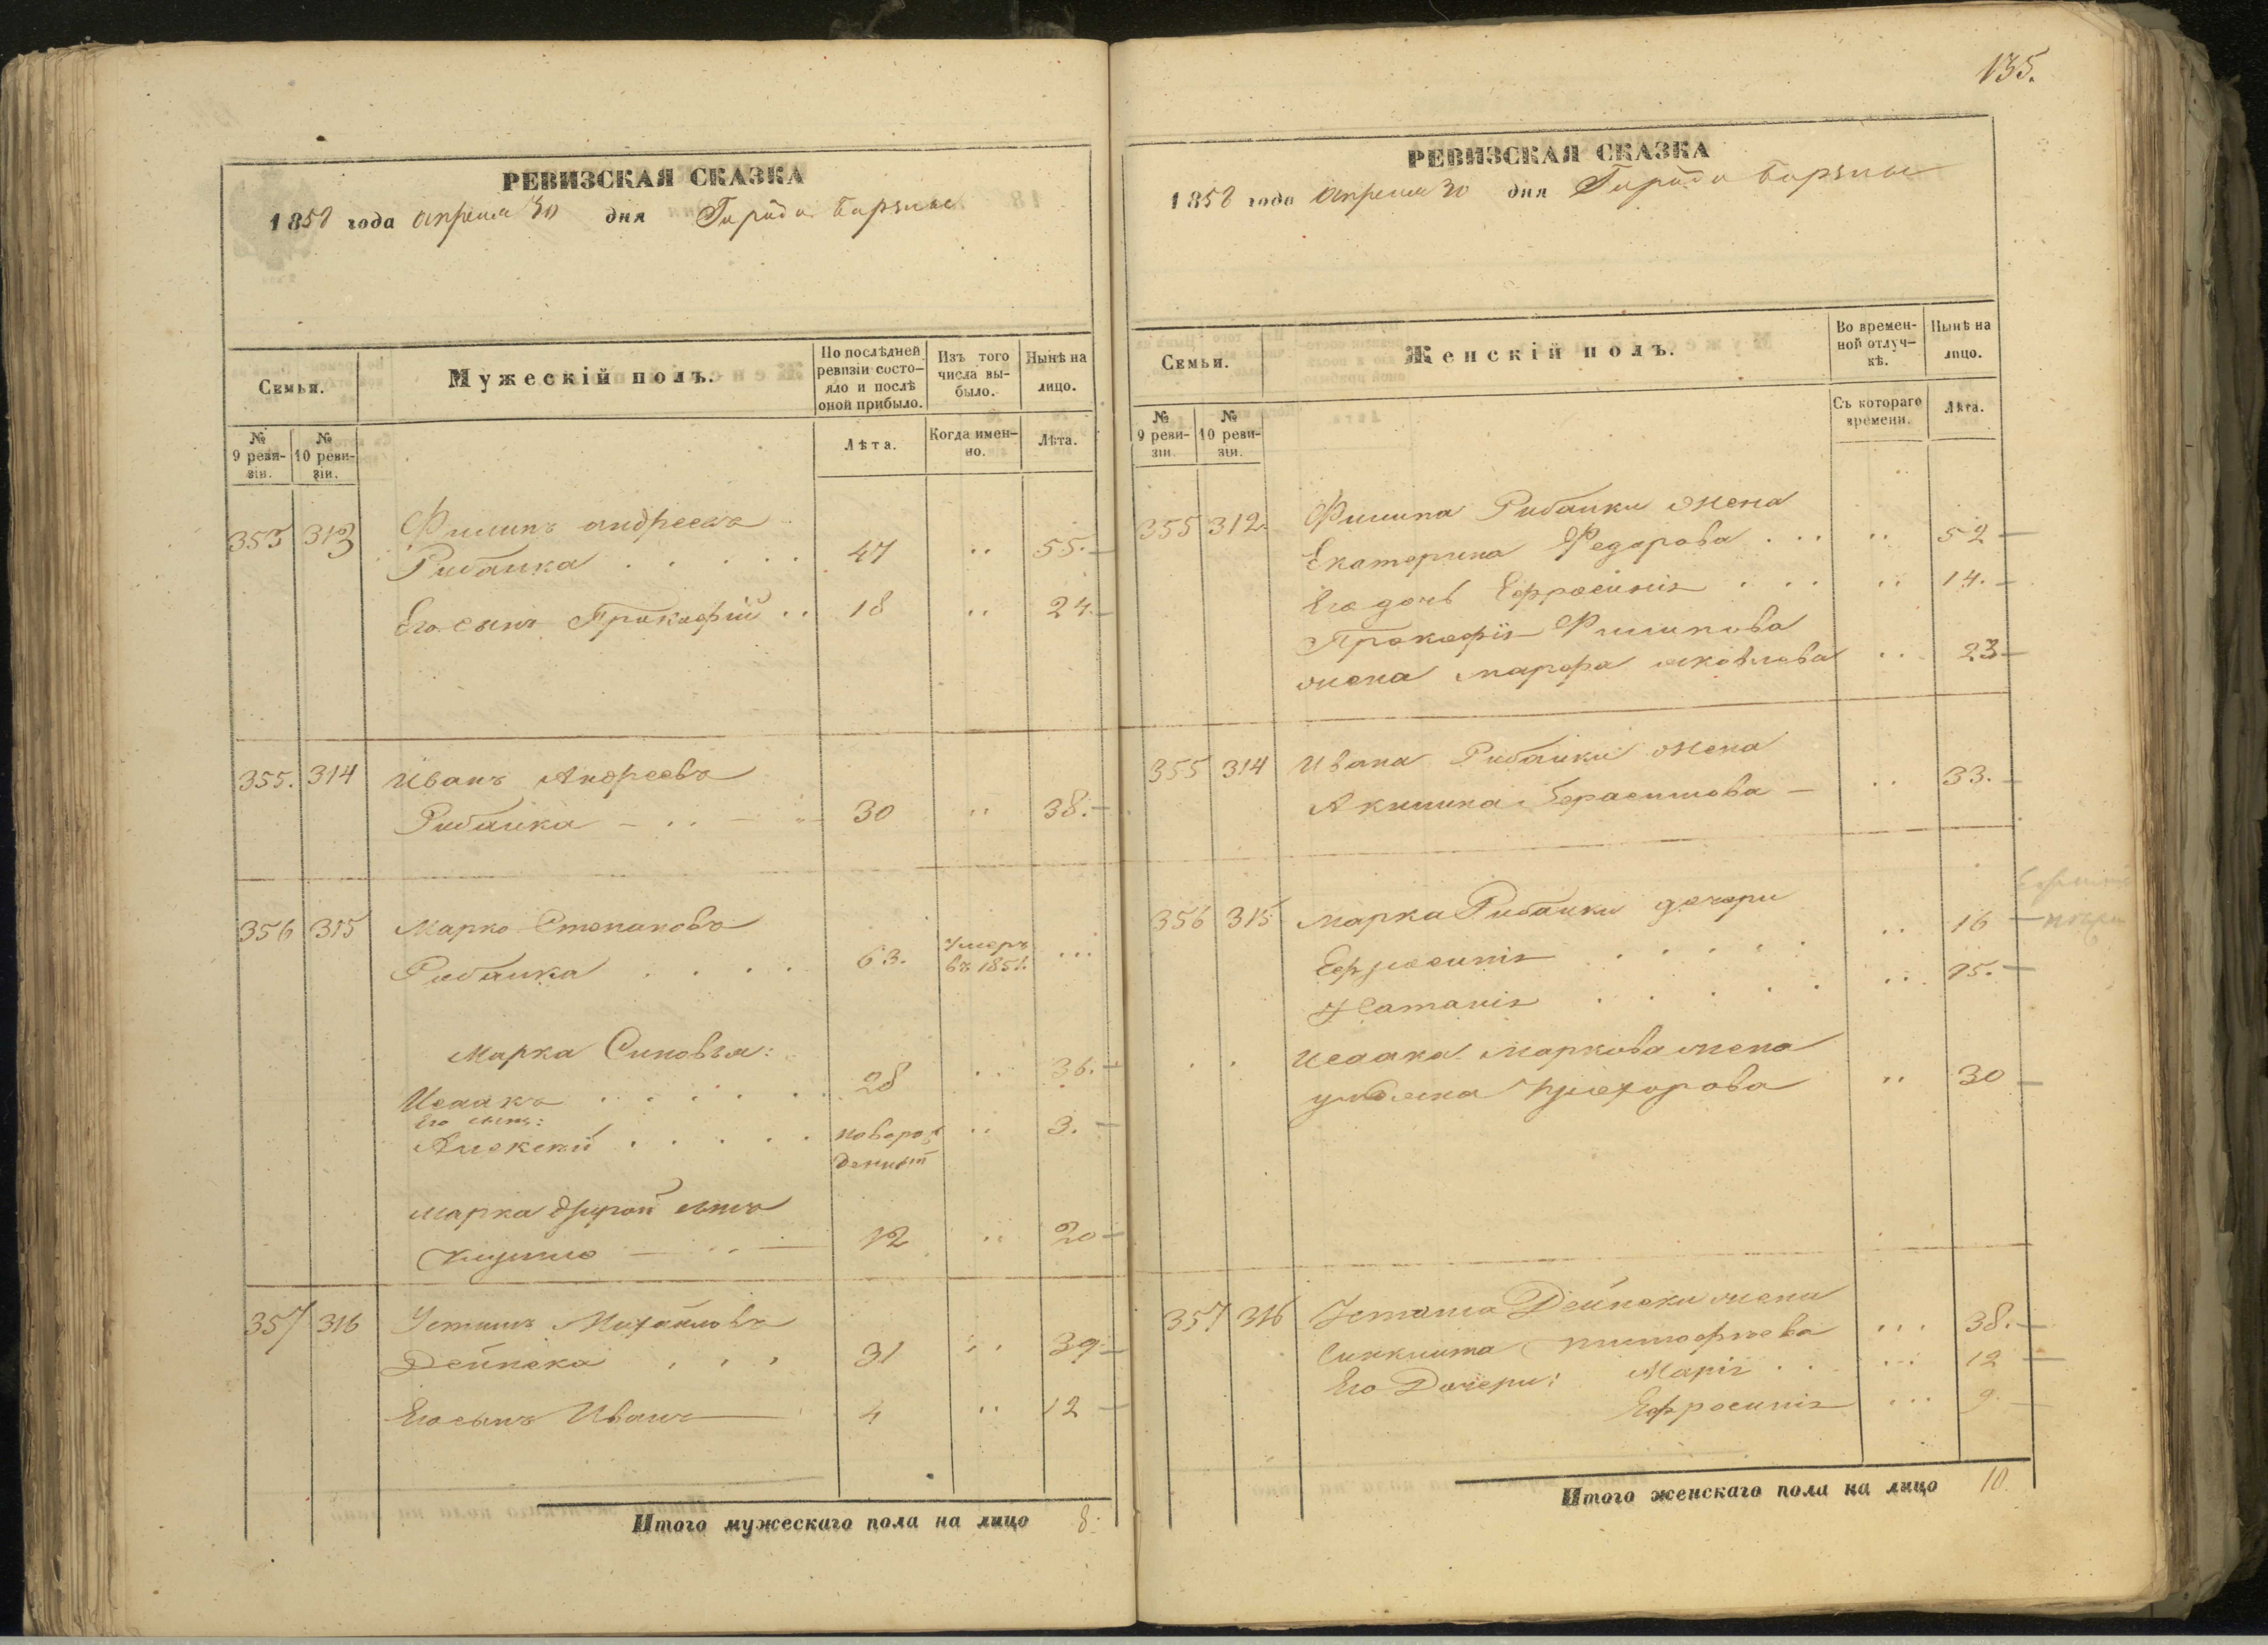 РЕВИЗСКАЯ СКАЗКА
1858 года апреля 30 дня Города Борзны
Семьи.
Мужескій полъ.
По послѣдней ревизіи состояло и послѣ оной прибыло.
Изъ того числа выбыло.
Нынѣ на лицо.
№ 9 ревизіи.
№ 10 ревизіи.
Лѣта.
Когда именно.
Лѣта.
353 313 Филипъ андреевъ
Рибалка . . . . . 47 .. 55.—
Его сынъ Прокофій .. 18 .. 24.—
355. 314 Иванъ Андреевъ
Рибалка — .. — 30 .. 38.—
356 315 Марко Степановъ
Рибалка . . . . 63. Умеръ въ 1851. ...
Марка Синовья:
Исаакъ . . . . . 28 .. 36.—
Его сынъ:
Алексѣй . . . . . новорожденный .. 3.—
Марка другой сынъ
12 .. 20—
357 316 Устинъ Михайловъ
Дейнека . . . 31 .. 39—
Его сынъ Иванъ — 4 .. 12 —
Итого мужескаго пола на лицо 8.
135.
РЕВИЗСКАЯ СКАЗКА
1858 года апреля 30 дня Города Борзны
Семьи.
Женскій полъ.
Во временной отлучкѣ.
Нынѣ на лицо.
№ 9 ревизіи.
№ 10 ревизіи.
Съ котораго времени.
Лѣта.
355 312. Филипа Рибалки жена
Екатерина Федорова . . . .. 52 —
Его дочь Ефросинія . . . .. 14.—
Прокофія Филипова
жена марфа яковлева .. 23—
355 314 Ивана Рибалки жена
Акилина Герасимова — .. 33.—
356 315 Марка Рибалки дочери
Ефросинія . . . . . .. 16 —
Наталія . . . . . ... 15.—
. . Исаака Маркова жена
ульяна Прохорова .. 30 —
357 316 Устина Дейнеки жена
Синклита тимофѣева ... 38.—
Его Дочери: Марія . . ... 12 —
Ефросинія ... 9.—
Итого женскаго пола на лицо 10.